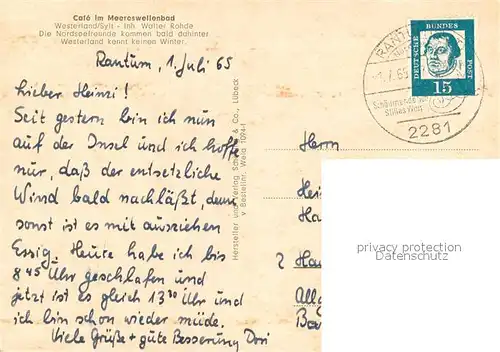 Café im Meereswellenbad
Westerland/Sylt - Inh. Walter Rohde
Die Nordseefreunde kommen bald dahinter
Westerland kennt keinen Winter.
Rantum, 1. Juli 65
Lieber Heinzi!
Seit gestern bin ich nun
auf der Insel und ich hoffe
nur, daß der entsetzliche
Wind bald nachläßt, denn
sonst ist es mit ausziehen
Essig. Heute habe ich bis
8 45 Uhr geschlafen und
jetzt ist es gleich 13 30 Uhr und
ich bin schon wieder müde.
Viele Grüße + gute Besserung Dori
Hersteller und Verlag & Co., Lübeck
Bestellnr. Weld 1094
RANTUM
7.65
2281
DEUTSCHE BUNDES POST
15
Herrn
Hei
Ha
2 Ha
Allg
privacy protection
DELCAMPE